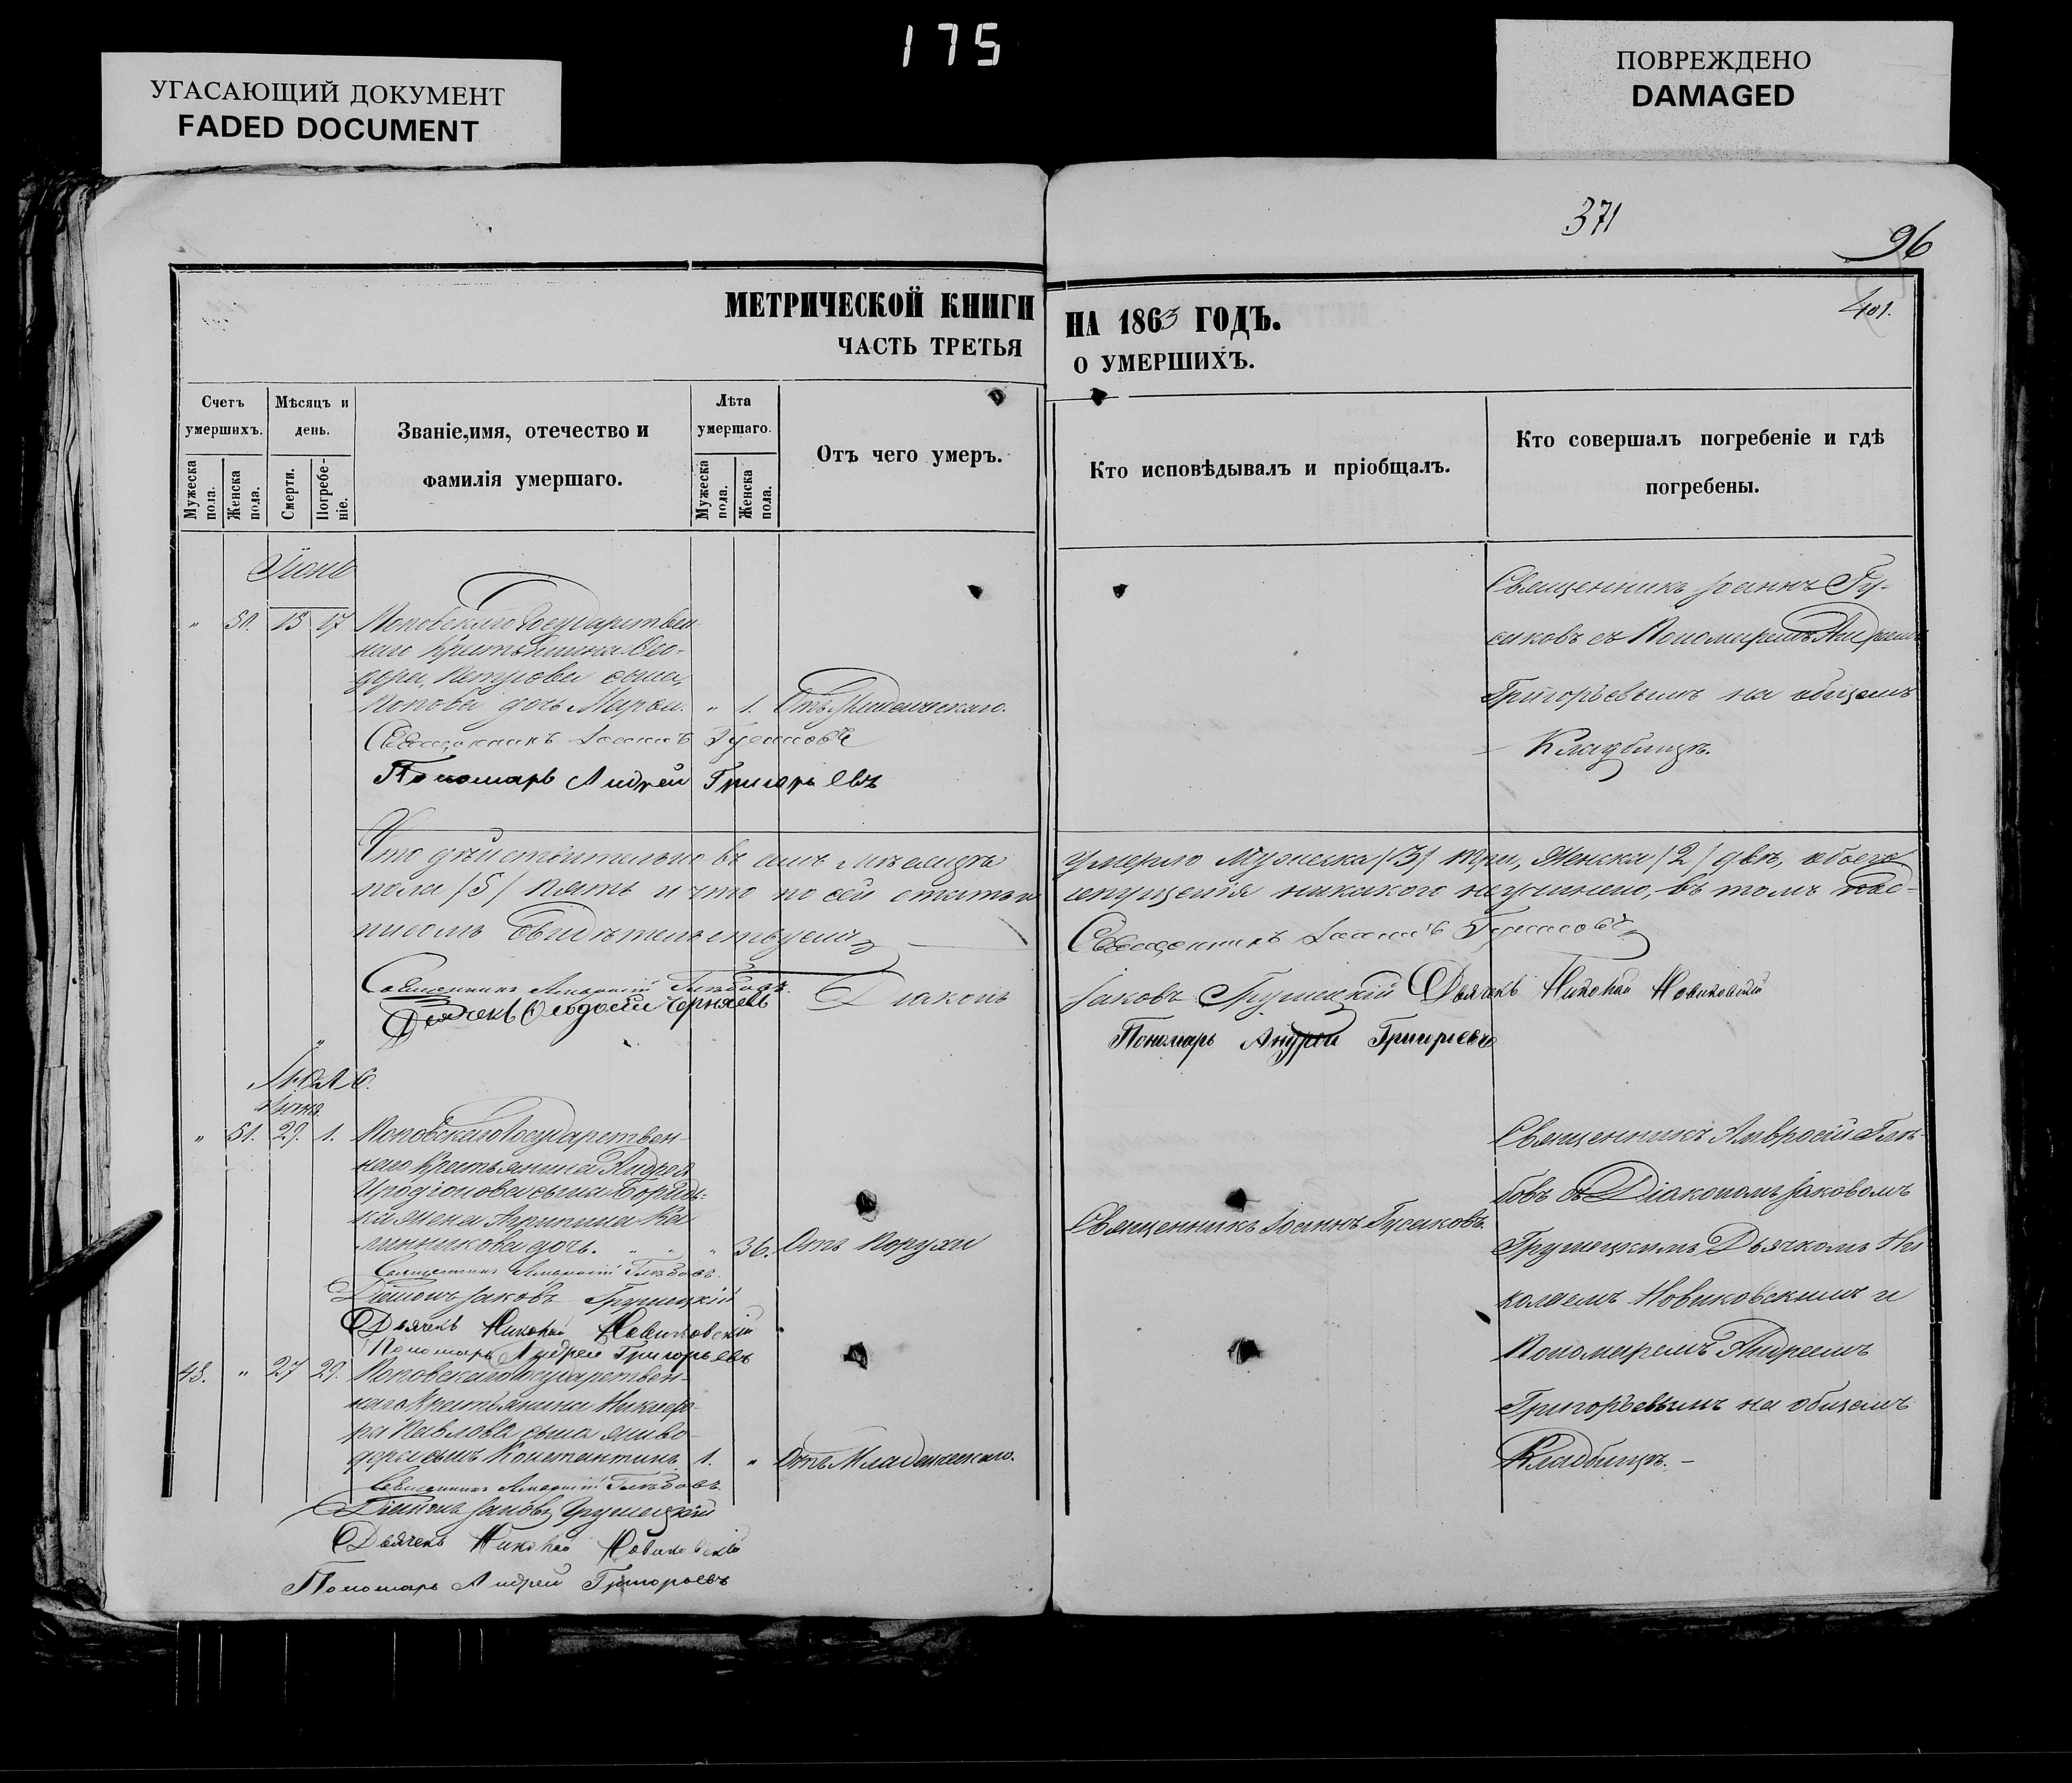 175
УГАСАЮЩИЙ ДОКУМЕНТ
FADED DOCUMENT
ПОВРЕЖДЕНО
DAMAGED
371
96
401.
МЕТРИЧЕСКОЙ КНИГИ
ЧАСТЬ ТРЕТЬЯ
НА 1863 ГОДЪ.
О УМЕРШИХЪ.
Счетъ умершихъ.
Мужеска пола.
Женска пола.
Мѣсяцъ и день.
Смерти.
Погребеніе.
Званіе,имя, отечество и
фамилія умершаго.
Лѣта умершаго.
Мужеска пола.
Женска пола.
Отъ чего умеръ.
Кто исповѣдывалъ и пріобщалъ.
Кто совершалъ погребеніе и гдѣ
погребены.
Іюнь
" 50. 15 17 Поповскаго Государствен-
наго Крестьянина Ѳео-
дора, Петрова сына,
Попова дочь Марѳа. " 1. Отъ Младенческаго.
Священникъ Іоаннъ Гусаковъ
Пономарь Андрей Григорьевъ
Священникъ Іоаннъ Гу-
саковъ съ Пономаремъ Андреемъ
Григорьевымъ на общемъ
Кладбищѣ.
Что дѣйствительно въ семъ мѣсяцѣ
умерло Мужеска (3) три, Женска (2) двѣ, обоего
пола (5) пять и что по сей статьи
опущенія никакого неучинено, въ томъ под-
писомъ свидѣтельствуемъ
Священникъ Іоаннъ Гусаковъ
Священникъ Амвросій Глѣбовъ. Діаконъ
Іаковъ Грушецкій Дьячекъ Николай Новиковскій
Дьячекъ Ѳеодосій Черняевъ
Пономарь Андрей Григорьевъ
Іюль.
Іюня.
" 51. 29. 1. Поповскаго Государствен-
наго Крестьянина Андрея
Иродіонова сына
жена Агрипина Ка
линникова дочь. " " " 36. Отъ
Священникъ Амвросій Глѣбовъ.
Діаконъ Іаковъ Грушецкій
Дьячекъ Николай Новиковскій
Пономарь Андрей Григорьевъ
Священникъ Іоаннъ Гусаковъ.
Священникъ Амвросій Глѣ-
бовъ съ Діакономъ Іаковомъ
Грушецкимъ Дьячкомъ Ни
колаемъ Новиковскимъ и
Пономаремъ Андреемъ
Григорьевымъ на общемъ
Кладбищѣ.
48. " 27 29. Поповскаго Государствен-
наго Крестьянина Никифо-
ра Павлова сына
сынъ Константинъ 1. " Отъ Младенческаго.
Священникъ Амвросій Глѣбовъ
Діаконъ Іаковъ Грушецкій
Дьячекъ Николай Новиковскій
Пономарь Андрей Григорьевъ